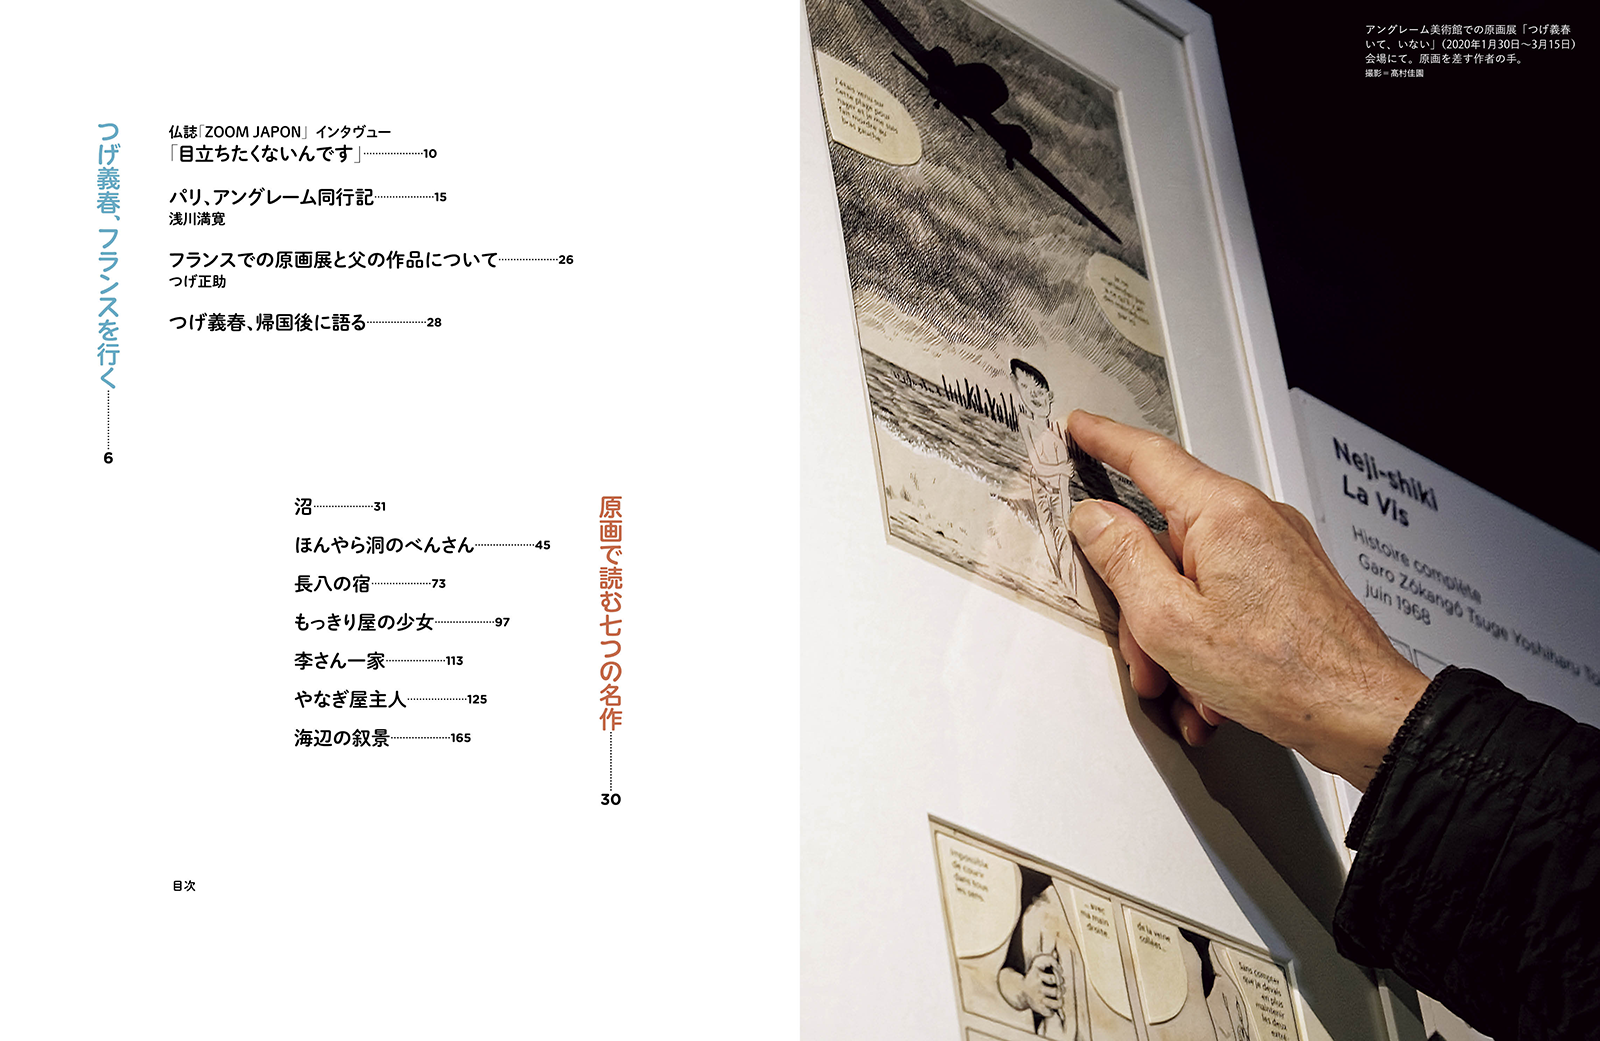 つげ義春、フランスを行く………6
仏誌「ZOOM JAPON」 インタヴュー
「目立ちたくないんです」………10
パリ、アングレーム同行記………15
浅川満寛
フランスでの原画展と父の作品について………26
つげ正助
つげ義春、帰国後に語る………28
原画で読む七つの名作………30
沼………31
ほんやら洞のべんさん………45
長八の宿………73
もっきり屋の少女………97
李さん一家………113
やなぎ屋主人………125
海辺の叙景………165
目次
アングレーム美術館での原画展「つげ義春
いて、いない」（2020年1月30日〜3月15日）
会場にて。原画を差す作者の手。
撮影＝髙村佳園
J'étais venu sur
cette plage pour
nager et je me suis
fait mordre au
bras gauche.
Neji-shiki
La Vis
Histoire complète
Garo Zôkangô Tsuge Yoshiharu To
juin 1968
Impossible
de courir
dans tous
les sens,
... avec
ma main
droite.
de la veine
collées...
Sans compter
que je devais
en plus
maintenir
les deux
extré